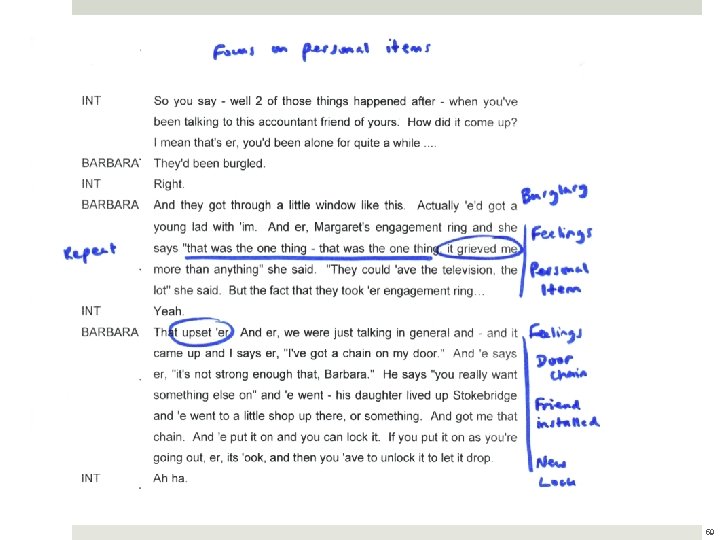 Focus on personal items
INT So you say - well 2 of those things happened after - when you've
been talking to this accountant friend of yours. How did it come up?
I mean that's er, you'd been alone for quite a while ....
BARBARA They'd been burgled.
INT Right.
BARBARA And they got through a little window like this. Actually 'e'd got a Burglary
young lad with 'im. And er, Margaret's engagement ring and she Feelings
Repeat says "that was the one thing - that was the one thing, it grieved me
more than anything" she said. "They could 'ave the television, the Personal
lot" she said. But the fact that they took 'er engagement ring... Item
INT Yeah.
BARBARA That upset 'er. And er, we were just talking in general and - and it Feelings
came up and I says er, "I've got a chain on my door." And 'e says Door
er, "it's not strong enough that, Barbara." He says "you really want Chain
something else on" and 'e went - his daughter lived up Stokebridge Friend
and 'e went to a little shop up there, or something. And got me that installed
chain. And 'e put it on and you can lock it. If you put it on as you're
going out, er, its 'ook, and then you 'ave to unlock it to let it drop. New
INT Ah ha. Lock
59